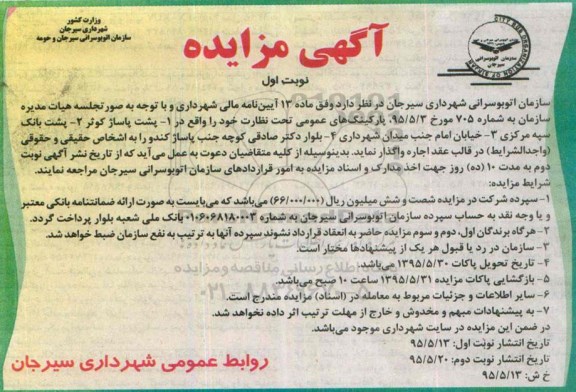 وزارت کشور
شهرداری سیرجان
سازمان اتوبوسرانی سیرجان و حومه
آگهی مزایده
نوبت اول
CITY BUS ORGANIZATION
سازمان اتوبوسرانی
سیرجان
سازمان اتوبوسرانی شهرداری سیرجان در نظر دارد وفق ماده ۱۳ آیین‌نامه مالی شهرداری و با توجه به صورتجلسه هیات مدیره
سازمان به شماره ۷۰۵ مورخ ۹۵/۵/۳، پارکینگ‌های عمومی تحت نظارت خود را واقع در ۱- پشت پاساژ کوثر ۲- پشت بانک
سپه مرکزی ۳- خیابان امام جنب میدان شهرداری ۴- بلوار دکتر صادقی کوچه جنب پاساژ کندو را به اشخاص حقیقی و حقوقی
(واجدالشرایط) در قالب عقد اجاره واگذار نماید. بدینوسیله از کلیه متقاضیان دعوت به عمل می‌آید که از تاریخ نشر آگهی نوبت
دوم به مدت ۱۰ (ده) روز جهت اخذ مدارک و اسناد مزایده به امور قراردادهای سازمان اتوبوسرانی سیرجان مراجعه نمایند.
شرایط مزایده:
۱- سپرده شرکت در مزایده شصت و شش میلیون ریال (۶۶/۰۰۰/۰۰۰) می‌باشد که می‌بایست به صورت ارائه ضمانتنامه بانکی معتبر
و یا وجه نقد به حساب سپرده سازمان اتوبوسرانی سیرجان به شماره ۰۱۰۶۰۶۸۱۸۰۰۰۳ بانک ملی شعبه بلوار پرداخت گردد.
۲- هرگاه برندگان اول، دوم و سوم مزایده حاضر به انعقاد قرارداد نشوند سپرده آنها به ترتیب به نفع سازمان ضبط خواهد شد.
۳- سازمان در رد یا قبول هر یک از پیشنهادها مختار است.
۴- تاریخ تحویل پاکات ۱۳۹۵/۵/۳۰ می‌باشد.
۵- بازگشایی پاکات مزایده ۱۳۹۵/۵/۳۱ ساعت ۱۰ صبح می‌باشد.
۶- سایر اطلاعات و جزئیات مربوط به معامله در (اسناد) مزایده مندرج است.
۷- به پیشنهادات مبهم و مخدوش و خارج از مهلت ترتیب اثر داده نخواهد شد.
در ضمن این مزایده در سایت شهرداری موجود می‌باشد.
تاریخ انتشار نوبت اول: ۹۵/۵/۱۳
تاریخ انتشار نوبت دوم: ۹۵/۵/۲۰
خ ش: ۹۵/۵/۱۳
روابط عمومی شهرداری سیرجان